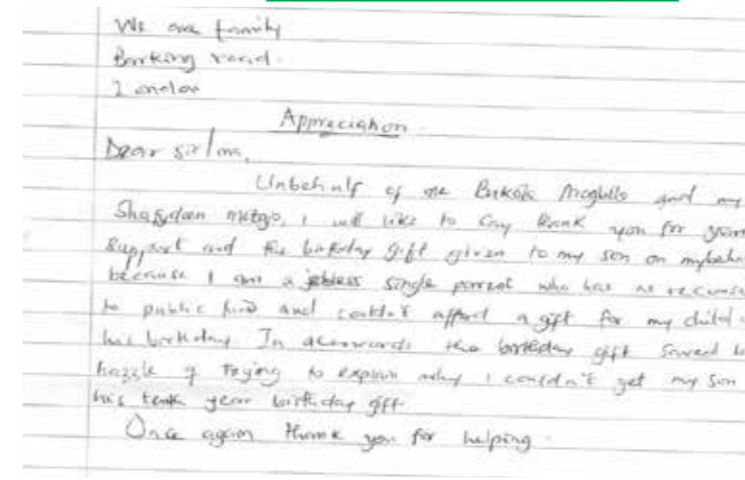 We are family
Barking road.
London
Appreciation.
Dear sir/ma,
Unbehalf of me Bukola and my
, I will like to say thank you for your
support and the birthday gift given to my son on mybeha
because I am a jobless single parent who has no recourse
to public fund and couldn't afford a gift for my child
his birthday. In the birthday gift saved
hazzle of trying to explain why I couldn't get my son
his tenth year birthday gift.
Once again thank you for helping.